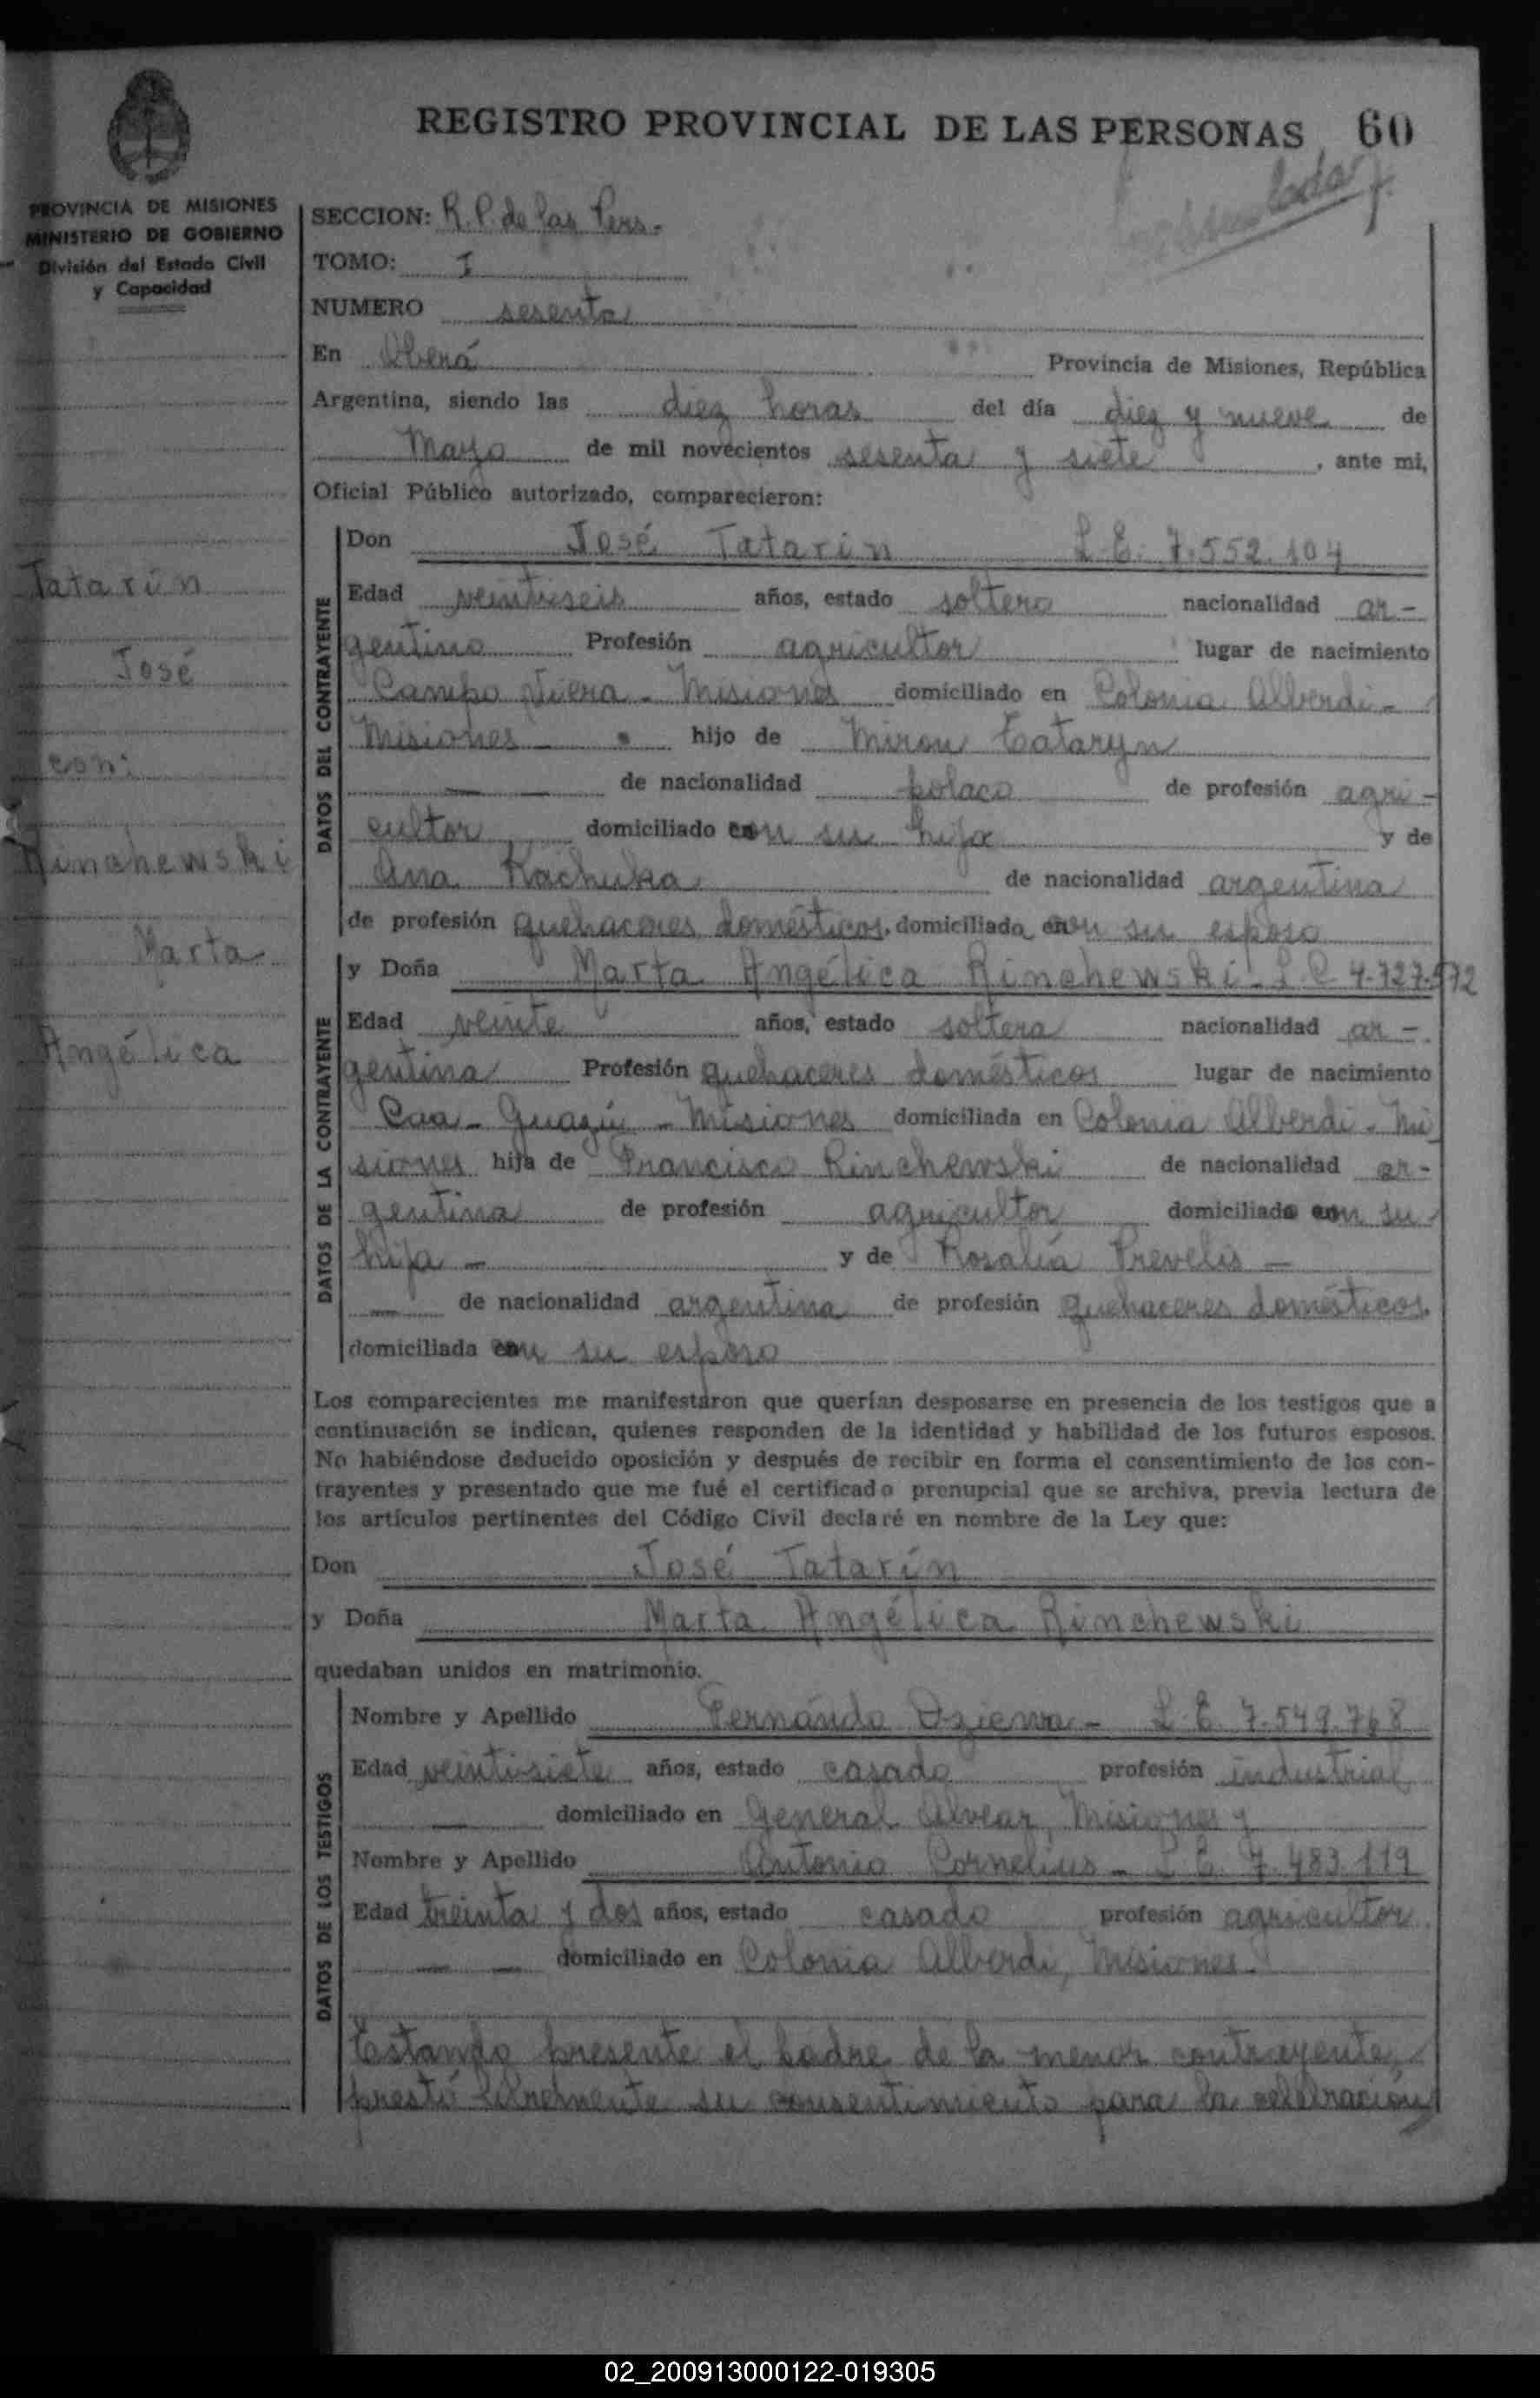 REGISTRO PROVINCIAL DE LAS PERSONAS 60
PROVINCIA DE MISIONES
MINISTERIO DE GOBIERNO
División del Estado Civil
y Capacidad
SECCION: R. P. de las Pers.
TOMO: I
NUMERO sesenta
En Oberá Provincia de Misiones, República
Argentina, siendo las diez horas del día diez y nueve de
Mayo de mil novecientos sesenta y siete, ante mi,
Oficial Público autorizado, comparecieron:
Tatarín
José
con:
Rinchewski
Marta
Angélica
DATOS DEL CONTRAYENTE
Don José Tatarín L.E. 7.552.104
Edad veintiseis años, estado soltero nacionalidad ar-
gentino Profesión agricultor lugar de nacimiento
Campo Viera - Misiones domiciliado en Colonia Alberdi -
Misiones - hijo de Miron Tataryn
de nacionalidad polaco de profesión agri-
cultor domiciliado con su hijo y de
Ana Kachuka de nacionalidad argentina
de profesión quehaceres domésticos, domiciliada con su esposo
DATOS DE LA CONTRAYENTE
y Doña Marta Angélica Rinchewski - L C 4.727.572
Edad veinte años, estado soltera nacionalidad ar-
gentina Profesión quehaceres domésticos lugar de nacimiento
Caa - Guazú - Misiones domiciliada en Colonia Alberdi - Mi
siones hija de Francisco Rinchewski de nacionalidad ar-
gentina de profesión agricultor domiciliado con su
hija - y de Rosalía Prevelis -
de nacionalidad argentina de profesión quehaceres domésticos.
domiciliada con su esposo
Los comparecientes me manifestaron que querían desposarse en presencia de los testigos que a
continuación se indican, quienes responden de la identidad y habilidad de los futuros esposos.
No habiéndose deducido oposición y después de recibir en forma el consentimiento de los con-
trayentes y presentado que me fué el certificado prenupcial que se archiva, previa lectura de
los artículos pertinentes del Código Civil declaré en nombre de la Ley que:
Don José Tatarín
y Doña Marta Angélica Rinchewski
quedaban unidos en matrimonio.
DATOS DE LOS TESTIGOS
Nombre y Apellido Fernándo Dziewa - L.E. 7.549.768
Edad veintisiete años, estado casado profesión industrial
domiciliado en General Alvear, Misiones y
Nombre y Apellido Antonio Cornelius - L E. 7.483.119
Edad treinta y dos años, estado casado profesión agricultor
domiciliado en Colonia Alberdi, Misiones.
Estando presente el padre de la menor contrayente,
prestó libremente su consentimiento para la celebración
02_200913000122-019305